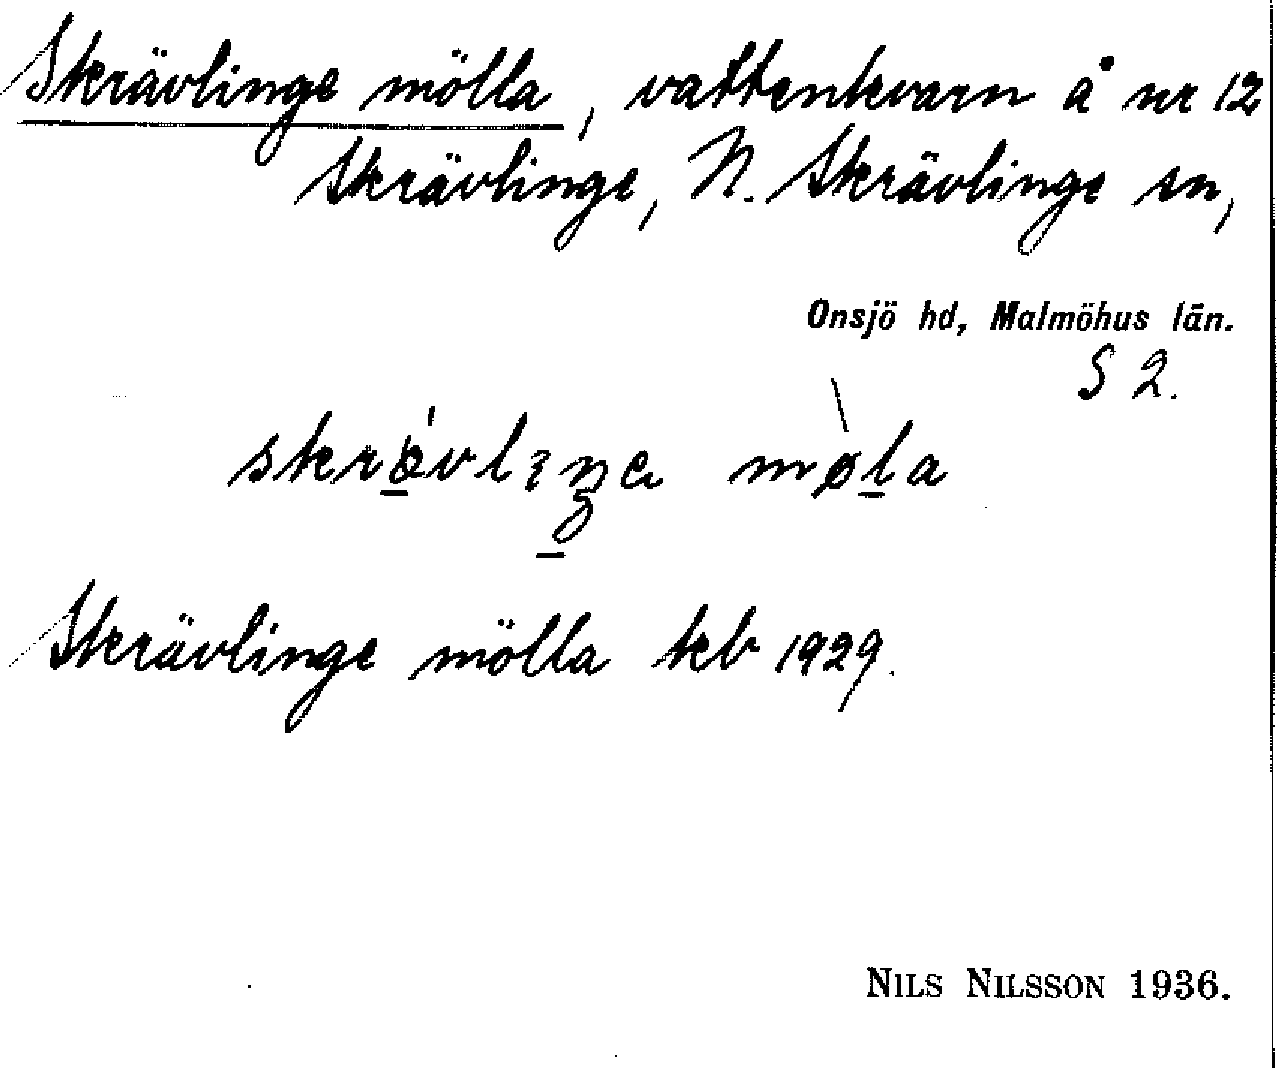 Skrävlinge mölla, vattenkvarn å nr 12
Skrävlinge, N. Skrävlinge sn,
Onsjö hd, Malmöhus län.
S 2.
møla
Skrävlinge mölla kb 1929.
NILS NILSSON 1936.